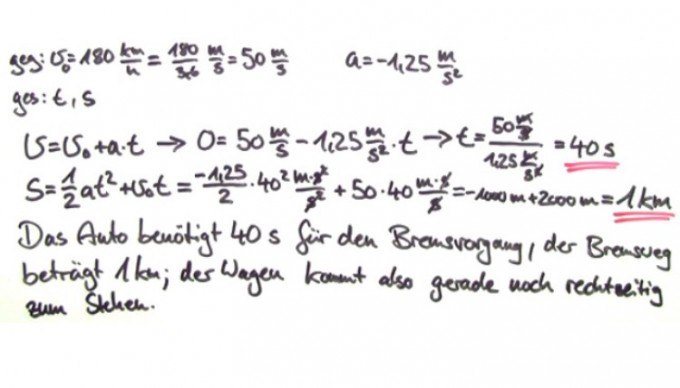 geg: v₀ = 180 km/h = 180/3,6 m/s = 50 m/s a = -1,25 m/s²
ges: t, s
v = v₀ + a·t → 0 = 50 m/s - 1,25 m/s² · t → t = 50 m/s / 1,25 m/s² = 40 s
s = 1/2 at² + v₀t = -1,25/2 · 40² m·s²/s² + 50·40 m·s/s = -1000 m + 2000 m = 1 km
Das Auto benötigt 40 s für den Bremsvorgang, der Bremsweg
beträgt 1 km; der Wagen kommt also gerade noch rechtzeitig
zum Stehen.